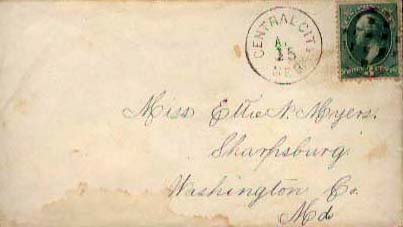 CENTRAL CITY
15
NEB
Miss Ettie N. Myers.
Sharpsburg
Washington Co.
Md